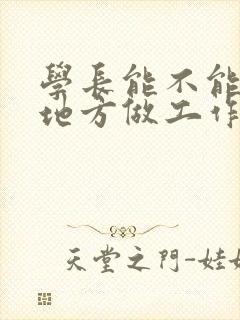 學長能不能
地方做工作
天堂之門-娃娃